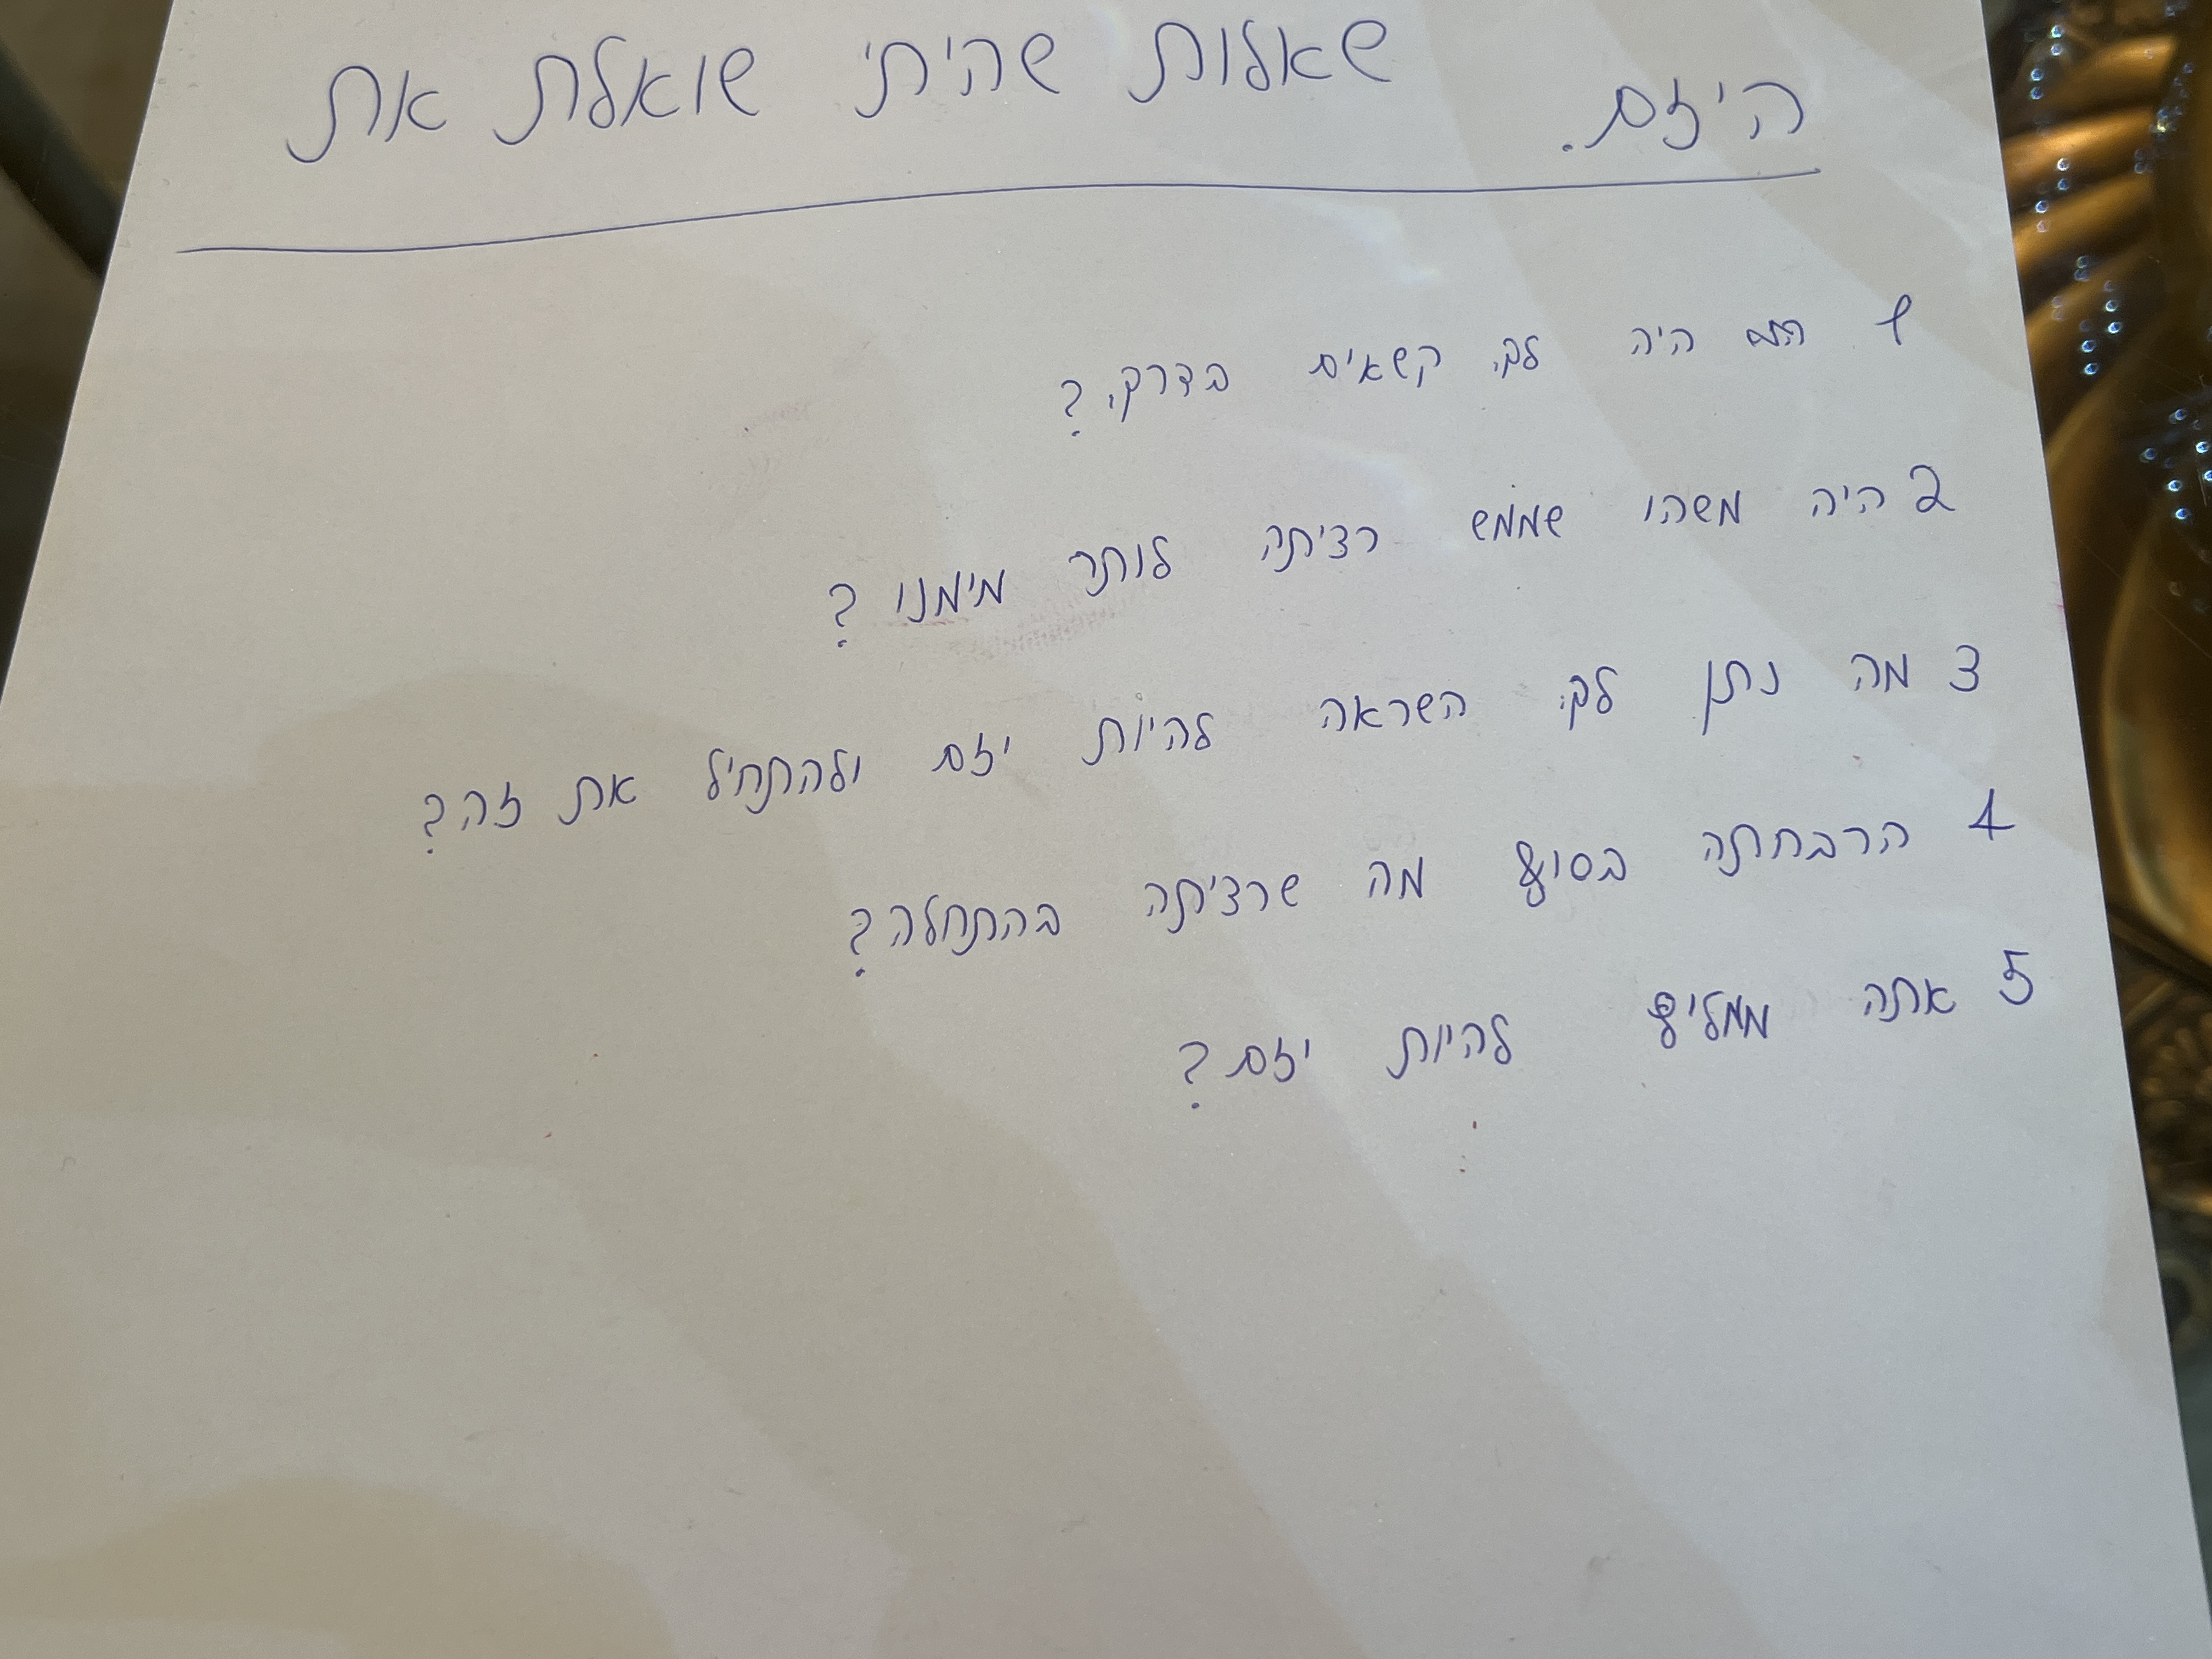 שאלות שהיתי שואלת את
היזם.
1 האם היה לך קשאים בדרך?
2 היה משהו שממש רציתה לותר מימנו?
3 מה נתן לך השראה להיות יזם ולהתחיל את זה?
4 הרבחתה בסוף מה שרציתה בהתחלה?
5 אתה ממליץ להיות יזם?